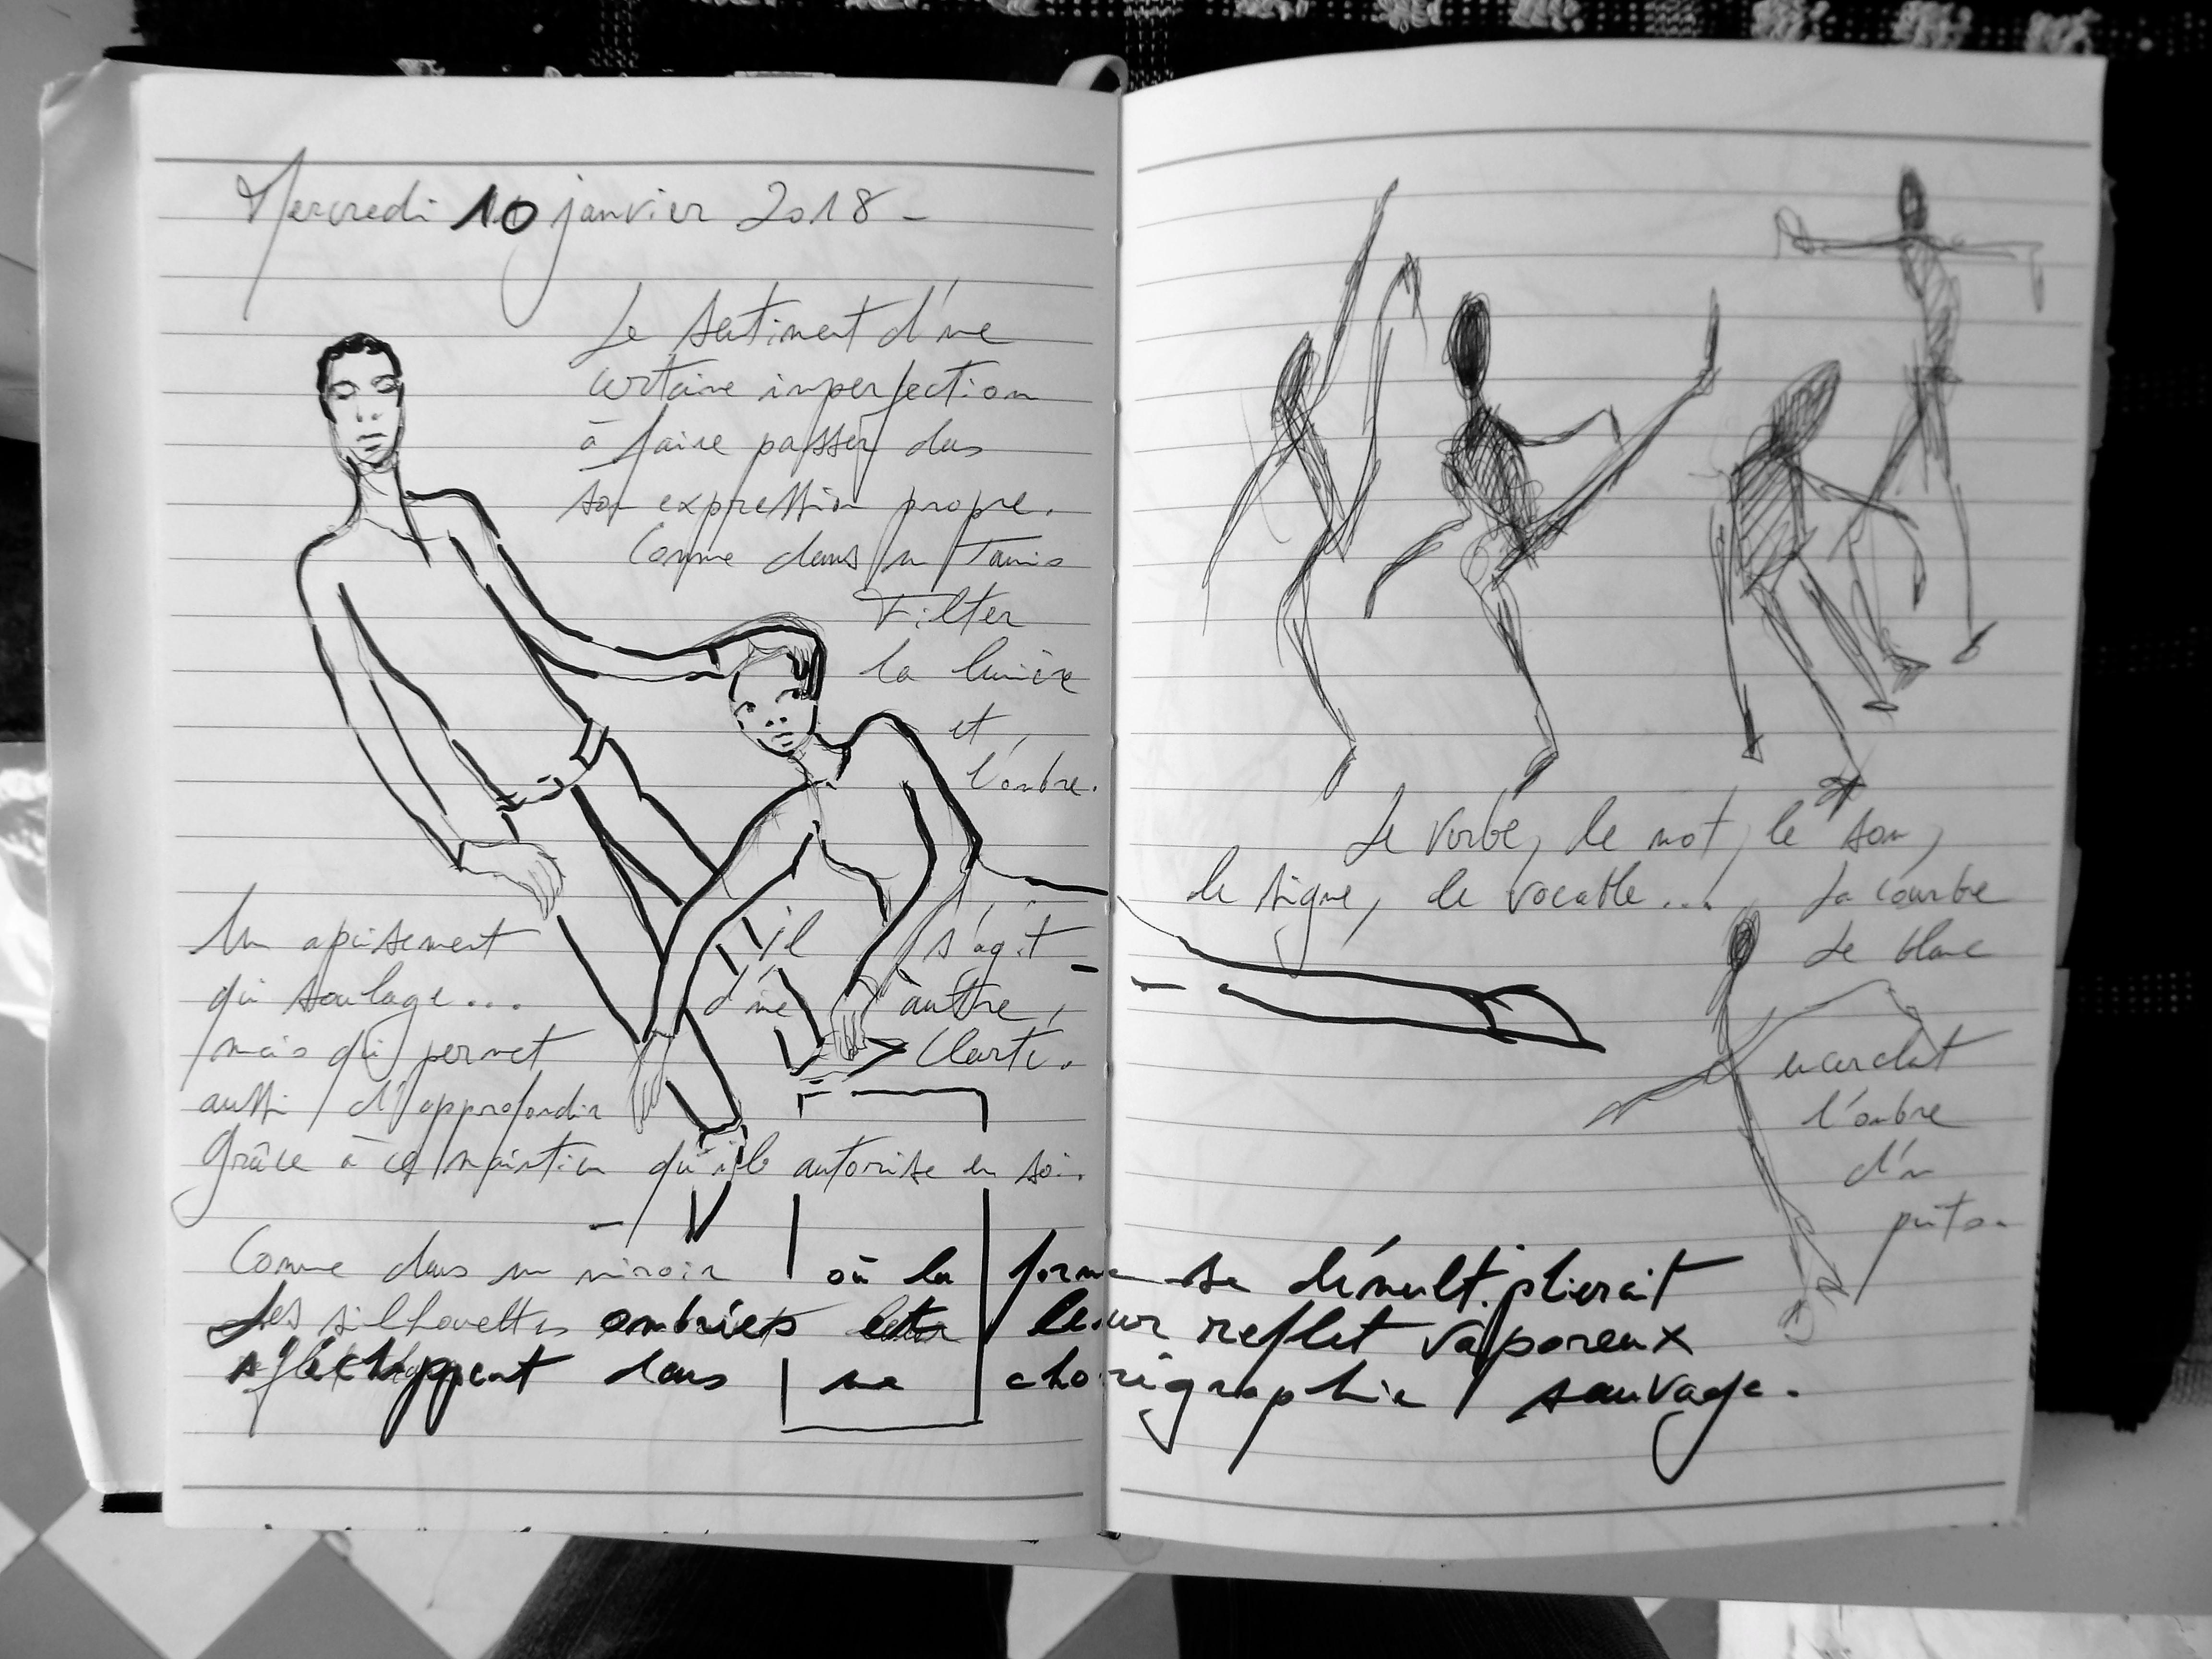 Mercredi 10 janvier 2018 -
Le sentiment d'une
certaine imperfection
à faire passer dans
son expression propre.
Comme dans un Tamis
Filter
la lumière
et
l'ombre.
Un apaisement
qui soulage...
mais qui permet
aussi d'approfondir
grâce à ce maintien qu'il autorise en soi.
il s'agit
d'une autre
Clarté.
Comme dans un miroir où la forme se démultiplierait
Les silhouettes ombriets leur reflet vaporeux
s'échappent dans une chorégraphie sauvage.
Le verbe, le mot, le son,
le signe, le vocable... La courbe
Le blanc
encerclant
l'ombre
d'un